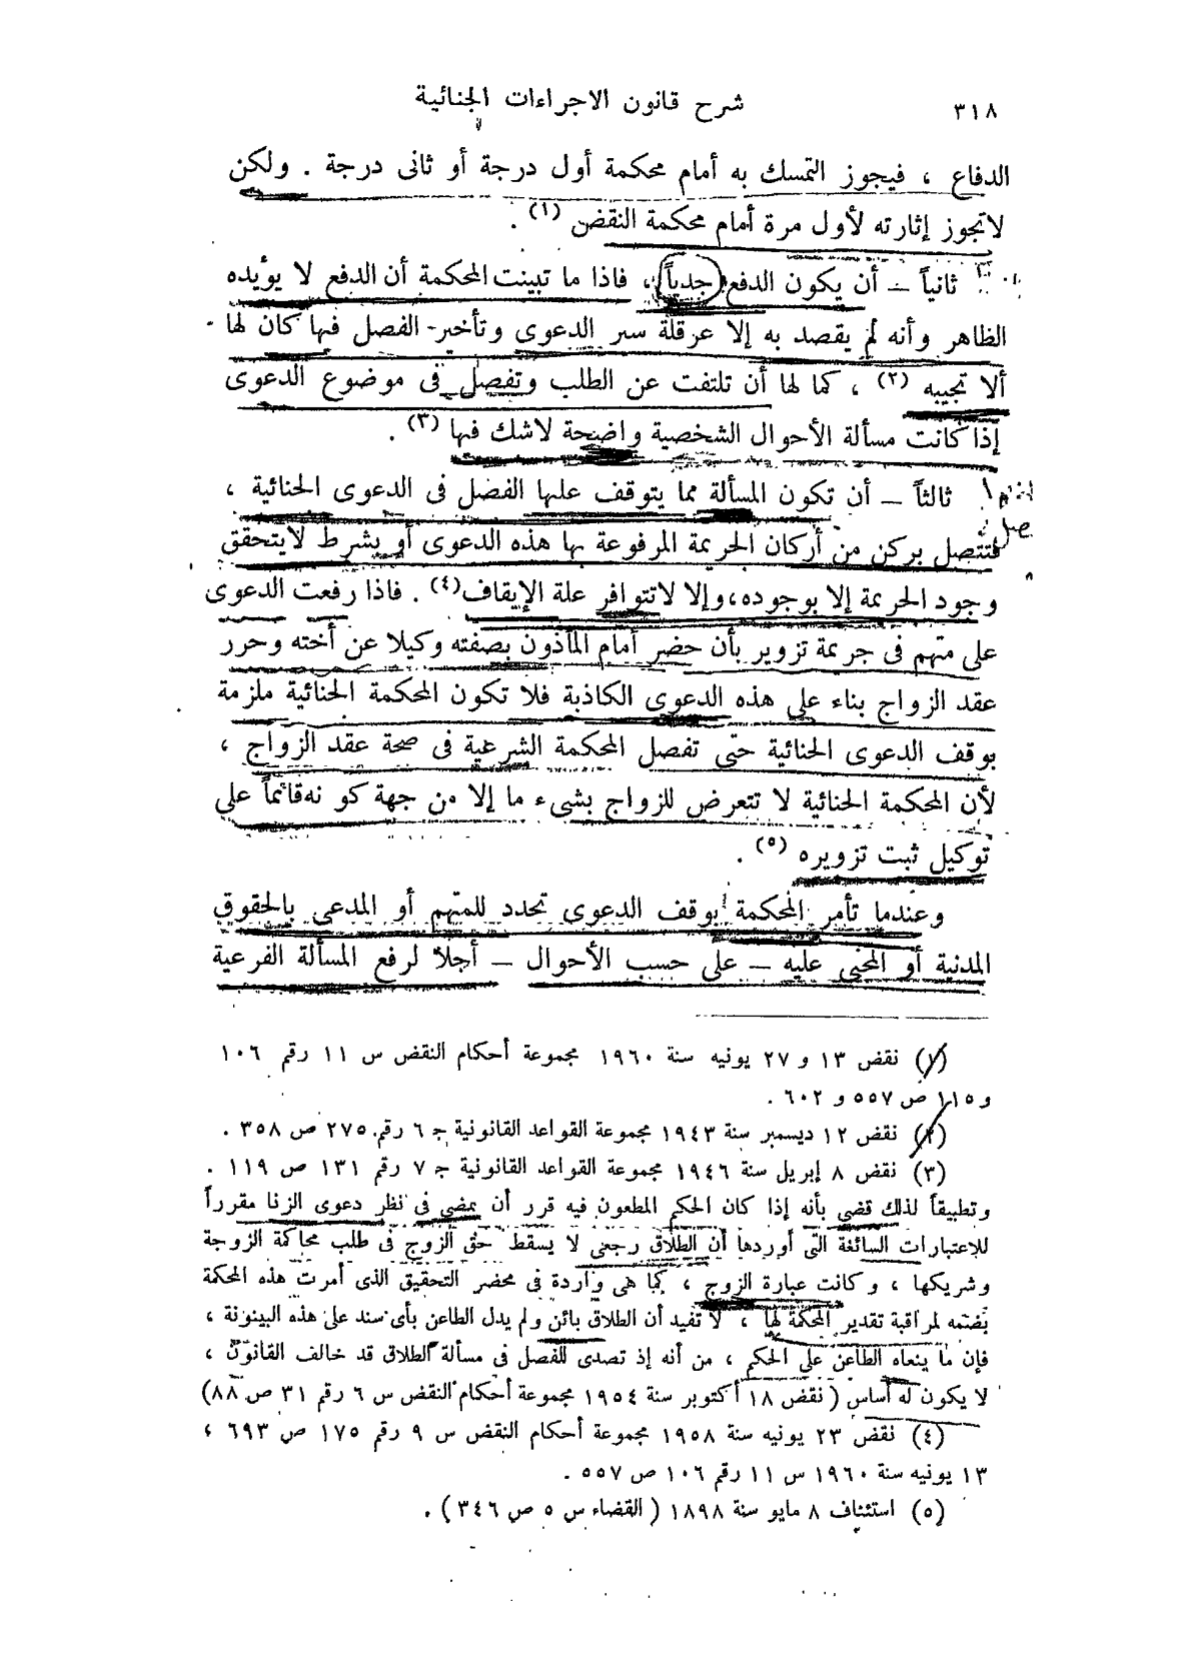 ٣١٨
شرح قانون الاجراءات الجنائية
الدفاع ، فيجوز التمسك به أمام محكمة أول درجة أو ثانى درجة . ولكن
لاتجوز إثارته لأول مرة أمام محكمة النقض (١) .
ثانياً – أن يكون الدفع جدياً ، فاذا ما تبينت المحكمة أن الدفع لا يؤيده
الظاهر وأنه لم يقصد به إلا عرقلة سير الدعوى وتأخير الفصل فيها كان لها
ألا تجيبه (٢) ، كما لها أن تلتفت عن الطلب وتفصل فى موضوع الدعوى
إذا كانت مسألة الأحوال الشخصية واضحة لاشك فيها (٣) .
ثالثاً – أن تكون المسألة مما يتوقف عليها الفصل فى الدعوى الجنائية ،
فتتصل بركن من أركان الجريمة المرفوعة بها هذه الدعوى أو بشرط لايتحقق
وجود الجريمة إلا بوجوده، وإلا لاتتوافر علة الإيقاف (٤) . فاذا رفعت الدعوى
على متهم فى جريمة تزوير بأن حضر أمام المأذون بصفته وكيلا عن أخته وحرر
عقد الزواج بناء على هذه الدعوى الكاذبة فلا تكون المحكمة الجنائية ملزمة
بوقف الدعوى الجنائية حتى تفصل المحكمة الشرعية فى صحة عقد الزواج ،
لأن المحكمة الجنائية لا تتعرض للزواج بشىء ما إلا من جهة كونه قائماً على
توكيل ثبت تزويره (٥) .
وعندما تأمر المحكمة بوقف الدعوى تحدد للمتهم أو المدعى بالحقوق
المدنية أو المجنى عليه – على حسب الأحوال – أجلا لرفع المسألة الفرعية
(١) نقض ١٣ و ٢٧ يونيه سنة ١٩٦٠ مجموعة أحكام النقض س ١١ رقم ١٠٦
و ١١٥ ص ٥٥٧ و ٦٠٢ .
(٢) نقض ١٢ ديسمبر سنة ١٩٤٣ مجموعة القواعد القانونية ج ٦ رقم ٢٧٥ ص ٣٥٨ .
(٣) نقض ٨ إبريل سنة ١٩٤٦ مجموعة القواعد القانونية ج ٧ رقم ١٣١ ص ١١٩ .
وتطبيقاً لذلك قضى بأنه إذا كان الحكم المطعون فيه قرر أن يمضى فى نظر دعوى الزنا مقرراً
للاعتبارات السائغة التى أوردها أن الطلاق رجعى لا يسقط حق الزوج فى طلب محاكمة الزوجة
وشريكها ، وكانت عبارة الزوج ، كما هى واردة فى محضر التحقيق الذى أمرت هذه المحكمة
بضمه لمراقبة تقدير المحكمة لها ، لا تفيد أن الطلاق بائن ولم يدل الطاعن بأى سند على هذه البينونة ،
فإن ما ينعاه الطاعن على الحكم ، من أنه إذ تصدى للفصل فى مسألة الطلاق قد خالف القانون ،
لا يكون له أساس ( نقض ١٨ أكتوبر سنة ١٩٥٤ مجموعة أحكام النقض س ٦ رقم ٣١ ص ٨٨)
(٤) نقض ٢٣ يونيه سنة ١٩٥٨ مجموعة أحكام النقض س ٩ رقم ١٧٥ ص ٦٩٣ ،
١٣ يونيه سنة ١٩٦٠ س ١١ رقم ١٠٦ ص ٥٥٧ .
(٥) استئناف ٨ مايو سنة ١٨٩٨ ( القضاء س ٥ ص ٣٤٦ ) .